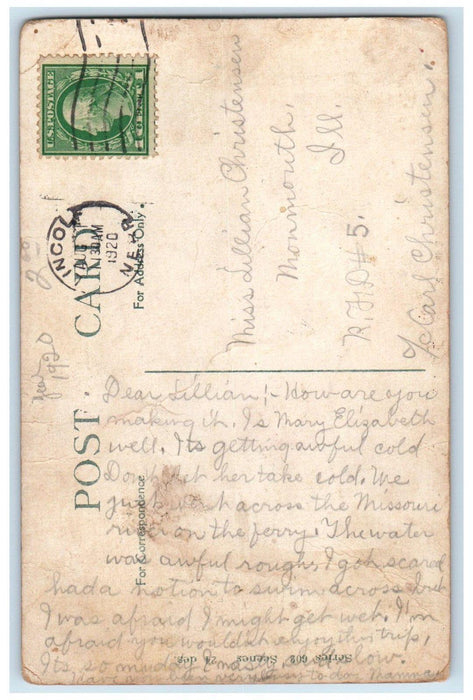 U.S. POSTAGE
1 CENT 1
LINCOLN
30 AM
1920
NEBR.
POST CARD
For Address Only.
For Correspondence
Miss Lillian Christensen
Monmouth,
Ill.
R.F.D # 5.
c/o Carl Christensen.
1920
Dear Lillian:- How are you
making it. Is Mary Elizabeth
well. Its getting awful cold
Dont let her take cold. We
just went across the Missouri
river on the ferry. The water
was awful rough, I got scared
had a notion to swim across but
I was afraid I might get wet. I'm
afraid you wouldn't enjoy this trip,
Its so muddy
Series 602 Scenes 24 des.